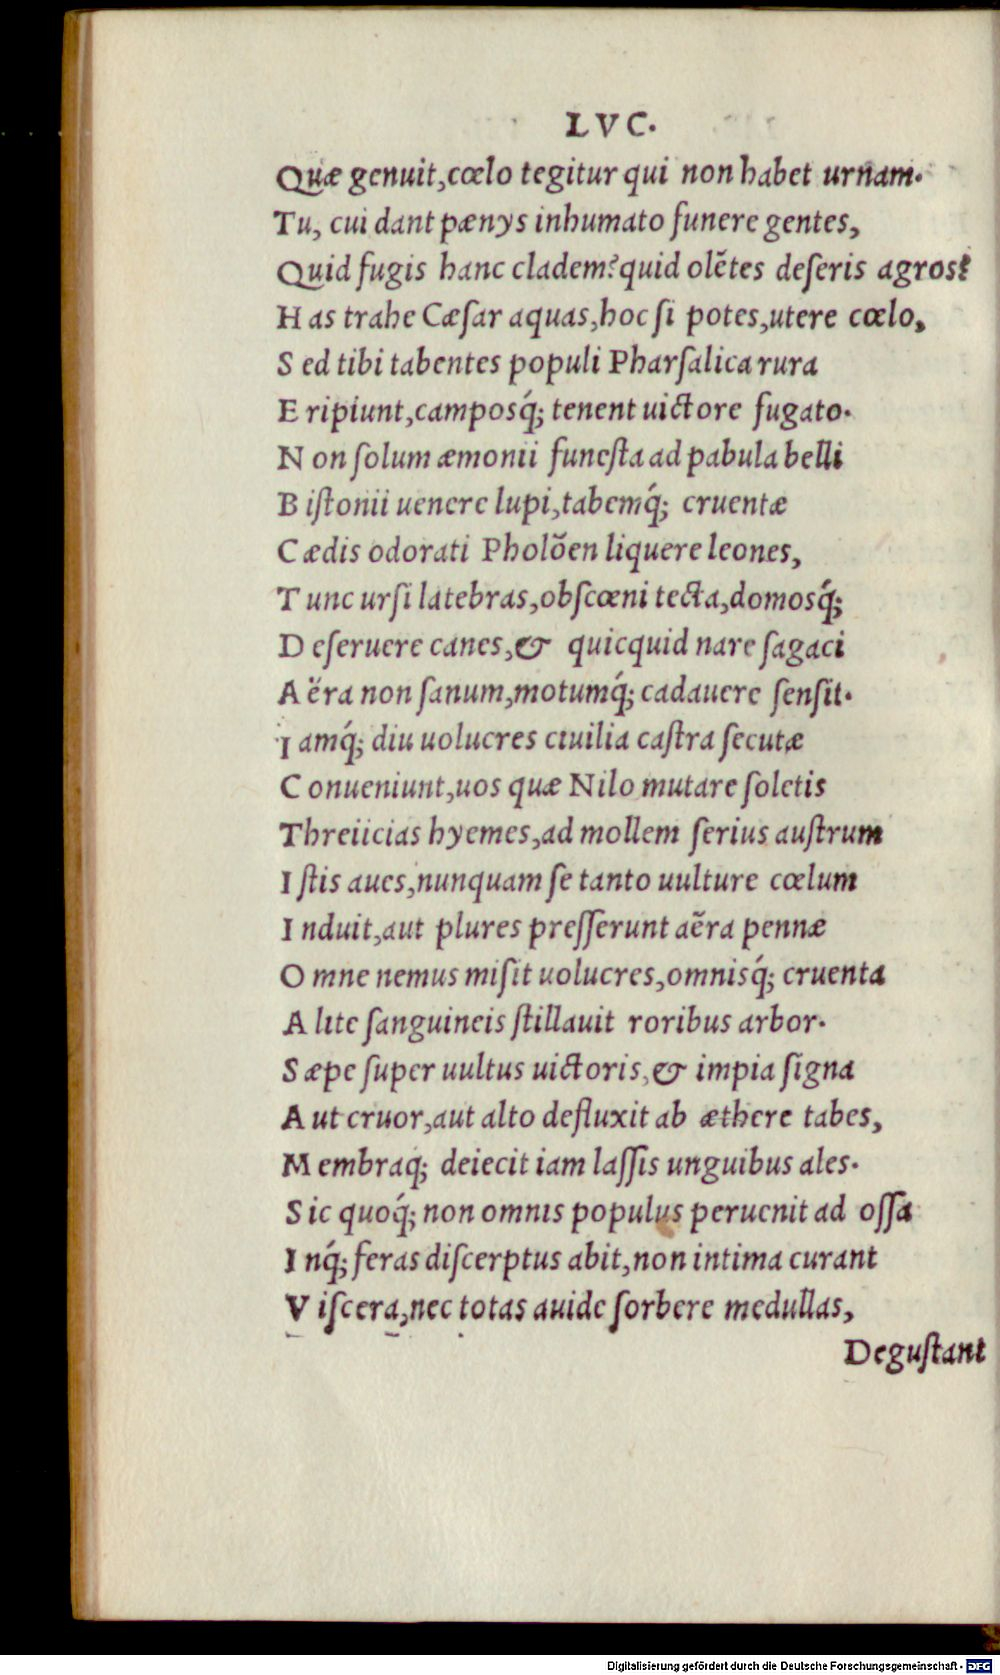 LVC.
Quæ genuit, cœlo tegitur qui non habet urnam.
Tu, cui dant pænys inhumato funere gentes,
Quid fugis hanc cladem? quid olẽtes deſeris agros?
H as trahe Cæſar aquas, hoc ſi potes, utere cœlo,
S ed tibi tabentes populi Pharſalica rura
E ripiunt, camposq́; tenent uictore fugato.
N on ſolum æmonii funeſta ad pabula belli
B iſtonii uenere lupi, tabemq́; cruentæ
C ædis odorati Pholõen liquere leones,
T unc urſi latebras, obſcœni tecta, domosq́;
D eſeruere canes, & quicquid nare ſagaci
A ëra non ſanum, motumq́; cadauere ſenſit.
I amq́; diu uolucres ciuilia caſtra ſecutæ
C onueniunt, uos quæ Nilo mutare ſoletis
Threiicias hyemes, ad mollem ſerius auſtrum
I ſtis aues, nunquam ſe tanto uulture cœlum
I nduit, aut plures preſſerunt aẽra pennæ
O mne nemus miſit uolucres, omnisq́; cruenta
A lite ſanguineis ſtillauit roribus arbor.
S æpe ſuper uultus uictoris, & impia ſigna
A ut cruor, aut alto defluxit ab æthere tabes,
M embraq; deiecit iam laſſis unguibus ales.
S ic quoq́; non omnis populus peruenit ad oſſa
I nq́; feras diſcerptus abit, non intima curant
V iſcera, nec totas auide ſorbere medullas,
Deguſtant
Digitalisierung gefördert durch die Deutsche Forschungsgemeinschaft - DFG